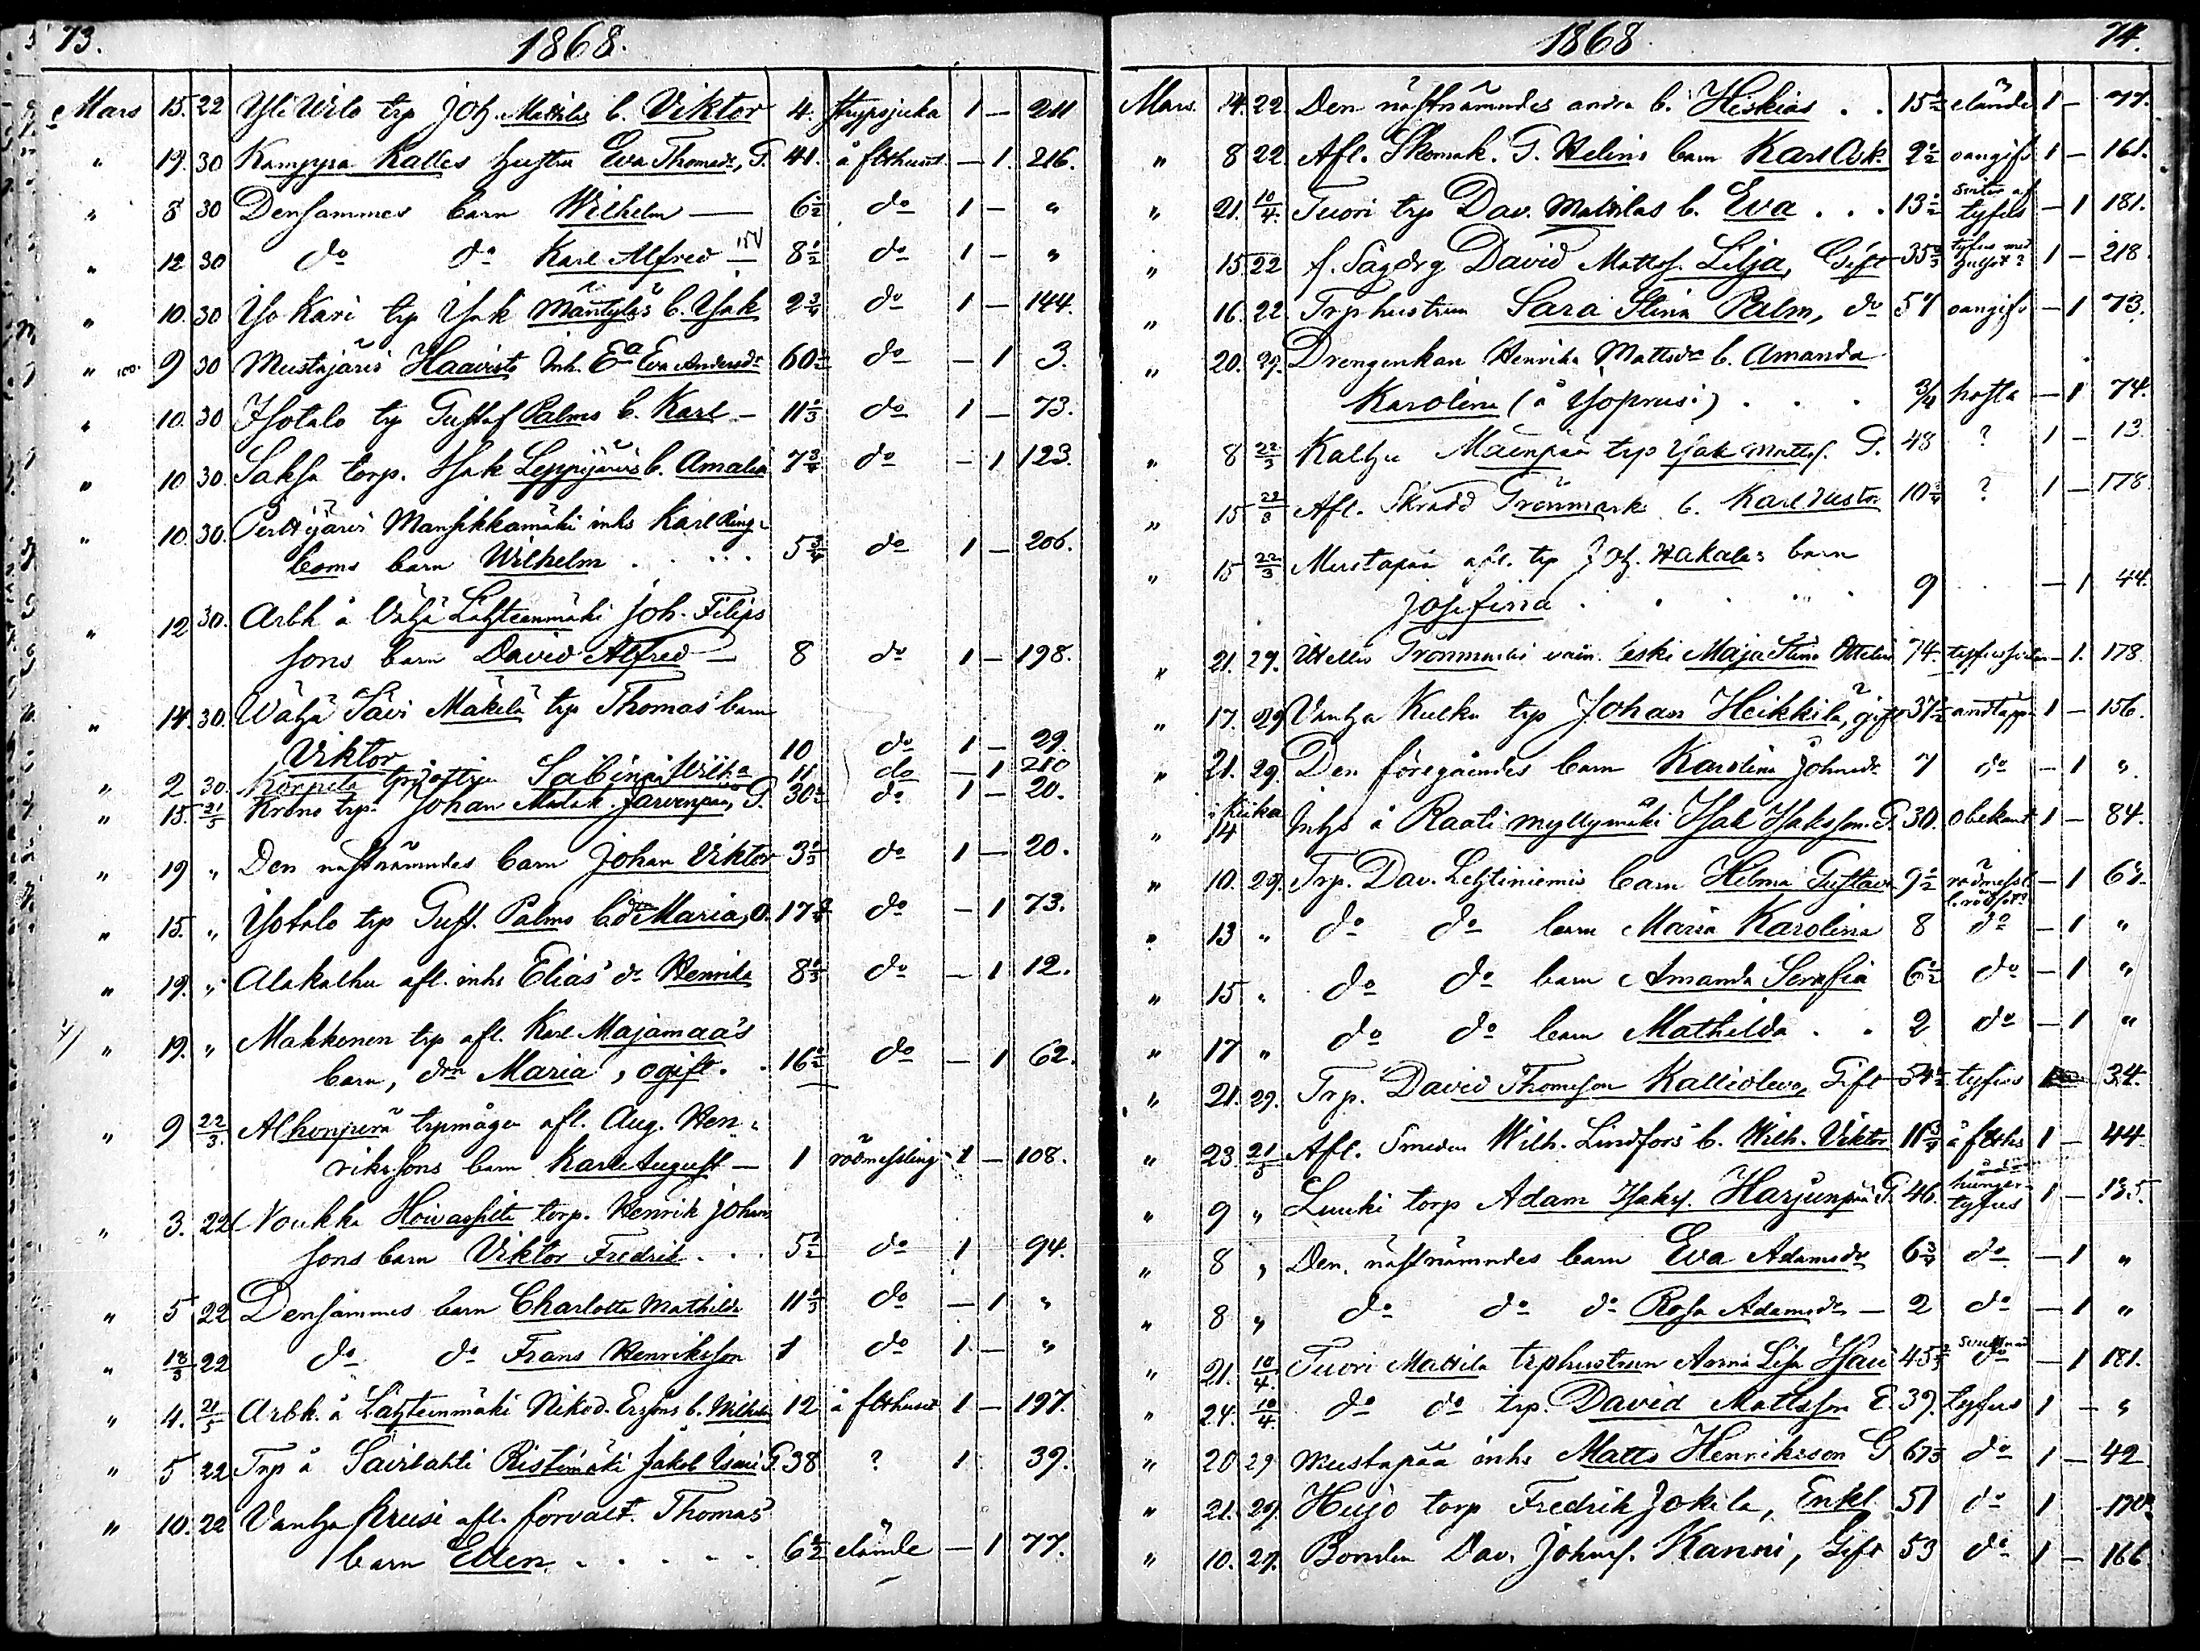 73. 1868.
Mars 15. 22 Yli Wilo trp Joh. Mattilas b. Viktor 4. strypsjuka 1 — 211
" 19. 30 Kamppra Kalles hustru Eva Thomasdr, G. 41. å ftthuset — 1. 216.
" 8 30 Densammes barn Wilhelm — 6½ do 1 — "
" 12 30 do do Karl Alfred — 8½ do 1 — "
" 10. 30 Yso Kari trp Isak Mäntyläs b. Isak 2¾ do 1 — 144.
" 9 30 Mustajärvi Haavisto inh. Ea Eva Andersdr 60½ do — 1 3.
" 10. 30 Isotalo trp Gustaf Palms b. Karl — 11⅓ do 1 — 73.
" 10 30. Saksa torp. Isak Leppijärvis b. Amalia 7¾ do — 1 123.
" 10. 30. Perttijärvi Mansikkamäki inhs Karl Ring-
boms barn Wilhelm . . . . 5¾ do 1 — 206.
" 12 30. Arbk å Vähä Lähteenmäki Joh. Filips
sons barn David Alfred — 8 do 1 — 198.
" 14. 30. Wähä Sävi Mäkelä trp Thomas barn
Viktor 10 do 1 — 29.
" 2 30. Korpela Sabina Wilh. 11 do — 1 210
" 15. 21/5 Krono trp. Johan Järvenpää, G. 30½ do 1 — 20.
" 19 " Den nästnämndes barn Johan Viktor 3⅓ do 1 — 20.
" 15. " Ysotalo trp Gust. Palms b. drn Maria, O. 17¾ do — 1 73.
" 19. " Alakalhu afl. inhs Elias' dr Henrika 8⅓ do — 1 12.
" 19. " Makkonen trp afl. Karl Majamaa's
barn, drn Maria, ogift. . 16½ do — 1 62.
" 9 22/3. Alhonperä trpmågen afl. Aug. Hen-
rikssons barn Karl August — 1 rödmessling 1 — 108.
" 3. 22 Noukka torp. Henrik Johans
sons barn Viktor Fredrik . . . 5½ do 1 94.
" 5 22 Densammes barn Charlotta Mathilda 11⅓ do — 1 "
" 22 do do Frans Henriksson 1 do 1 — "
" 4. 21/5 Arbk. å Lähteenmäki Nikod. Ersons b. Wilhelm 12 å ftthuset 1 — 197.
" 5 22 Trp å Sairlahti Ristimäki Jakob G. 38 ? 1 39.
" 10. 22 Vanha Krusi afl. förvalt. Thomas'
barn Eden . . . . . 6½ elände — 1 77.
1868 74.
Mars. 14. 22. Den nästnämndes andra b. Heskias . . 15½ elände 1 — 77.
" 8 22 Afl. Skomak. G. Helins barn Karl Osk. 2½ oangift 1 — 161.
" 21. 10/4. Tuori trp Dav. Mattilas b. Eva . . . 13½ sviter af tyfus — 1 181.
" 15. 22 f. Sågdrg David Mattss. Lilja, Gift 35⅔ tyfus med gulsot? 1 — 218.
" 16. 22 Trphustrun Sara Stina Palm, do 57 oangift — 1 73.
" 20. 29. Drengenkan Henrika Mattsdr b. Amanda
Karolina (å Ysoprusi) . . . 3/4 hosta — 1 74.
" 8 22/3 Kalhu Mäenpää trp Isak Mattss. G. 48 ? 1 — 13.
" 15 22/3 Afl. Skrädd Grönmark b. Karl Gustav 10¾ ? 1 — 178.
" 15 22/3 Mustapää afl. trp Joh. Hakalas barn
Josefina . . . . . 9 . . — 1 44.
" 21. 29. Utelln Grönmarks vain. leski Maja Stina Ottilia 74. — 1. 178
" 17. 29 Vanha Kulku trp Johan Heikkilä, gift 37½ andtäppa 1 — 156.
" 21. 29. Den föregåendes barn Karolina Johansdr 7 do — 1 ".
" 14 Kiika Inhs å Raati myllymäki Isak Isaksson. G. 30. obekant 1 — 84.
" 10. 29. Trp. Dav. Lehtiniemis barn Helma Gustava 9½ rödmessl. l. rödsot? — 1 67.
" 13 " do do barn Maria Karolina 8 do — 1 "
" 15 " do do barn Amanda Serafia 6½ do — 1 "
" 17 " do do barn Mathilda . . 2 do — 1 "
" 21. 29. Trp. David Thomsson Kalliolevo, Gift 54½ tyfus 1 — 34.
" 23. 21/5 Afl. Smeden Wilh. Lindfors' b. Wilh. Viktor 11¾ å ftths 1 — 44.
" 9 " Luuki torp Adam Isaks. Harjunpää G. 46. hunger-tyfus 1 — 135.
" 8 " Den nästnämndes barn Eva Adamsdr 6¾ do — 1 "
" 8 " do do do Rosa Adamsdr — 2 do — 1 "
" 21. 10/4. Tuori Mattila trphustrun Anna Lisa 45⅔ do — 1 181.
" 24. 10/4. do do trp. David Mattsson E. 39. tyfus 1 — "
" 20 29 Mustapää inhs Matts Henriksson G 67⅓ do 1 — 42
" 21. 29. Hujo torp Fredrik Jokela, Enkl. 51 do 1
" 10. 29. Bonden Dav. Johans. Hanni, Gift 53 do 1 — 166.